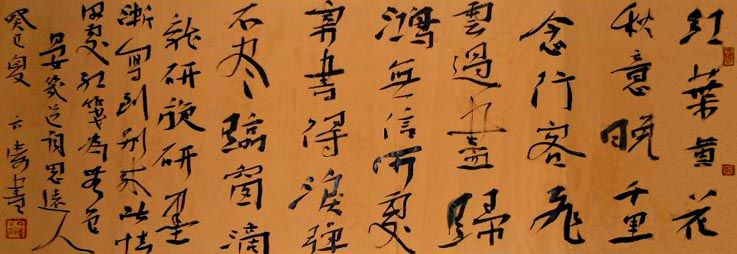 紅葉黄花
秋意晚千里
念行客飛
雲過盡歸
鴻無信何處
寄書得淚彈
不盡臨窗滴
就研旋研墨
漸寫到別來此情
深處紅箋為無色
晏幾道詞思遠人
癸巳夏書